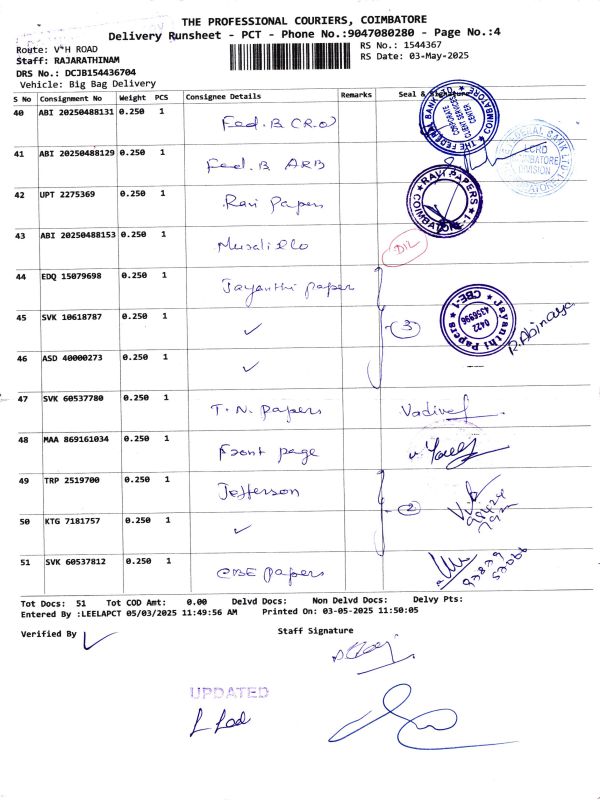 THE PROFESSIONAL COURIERS, COIMBATORE
Delivery Runsheet - PCT - Phone No.:9047080280 - Page No.:4
Route: V*H ROAD
RS No.: 1544367
Staff: RAJARATHINAM
RS Date: 03-May-2025
DRS No.: DCJB154436704
Vehicle: Big Bag Delivery
S No Consignment No Weight PCS Consignee Details Remarks Seal & Signature
40 ABI 20250488131 0.250 1 Fed. B CRO
THE FEDERAL BANK LTD. COIMBATORE CORPORATE CLIENT SERVICES CENTER
41 ABI 20250488129 0.250 1 Fed. B ARB
LCRD COIMBATORE DIVISION
42 UPT 2275369 0.250 1 Ravi Papers
RAVI PAPERS COIMBATORE-1
43 ABI 20250488153 0.250 1 DIL
44 EDQ 15079698 0.250 1 Jayanthi paper
45 SVK 10618787 0.250 1 ✓ 3
Jayanthi Papers CBE-1 0422 4356996
R. Abinaya
46 ASD 40000273 0.250 1 ✓
47 SVK 60537780 0.250 1 T. N. papers
48 MAA 869161034 0.250 1 Front page
49 TRP 2519700 0.250 1 Jefferson
50 KTG 7181757 0.250 1 ✓ 2
51 SVK 60537812 0.250 1 CBE papers
Tot Docs: 51 Tot COD Amt: 0.00 Delvd Docs: Non Delvd Docs: Delvy Pts:
Entered By :LEELAPCT 05/03/2025 11:49:56 AM Printed On: 03-05-2025 11:50:05
Verified By ✓ Staff Signature
UPDATED